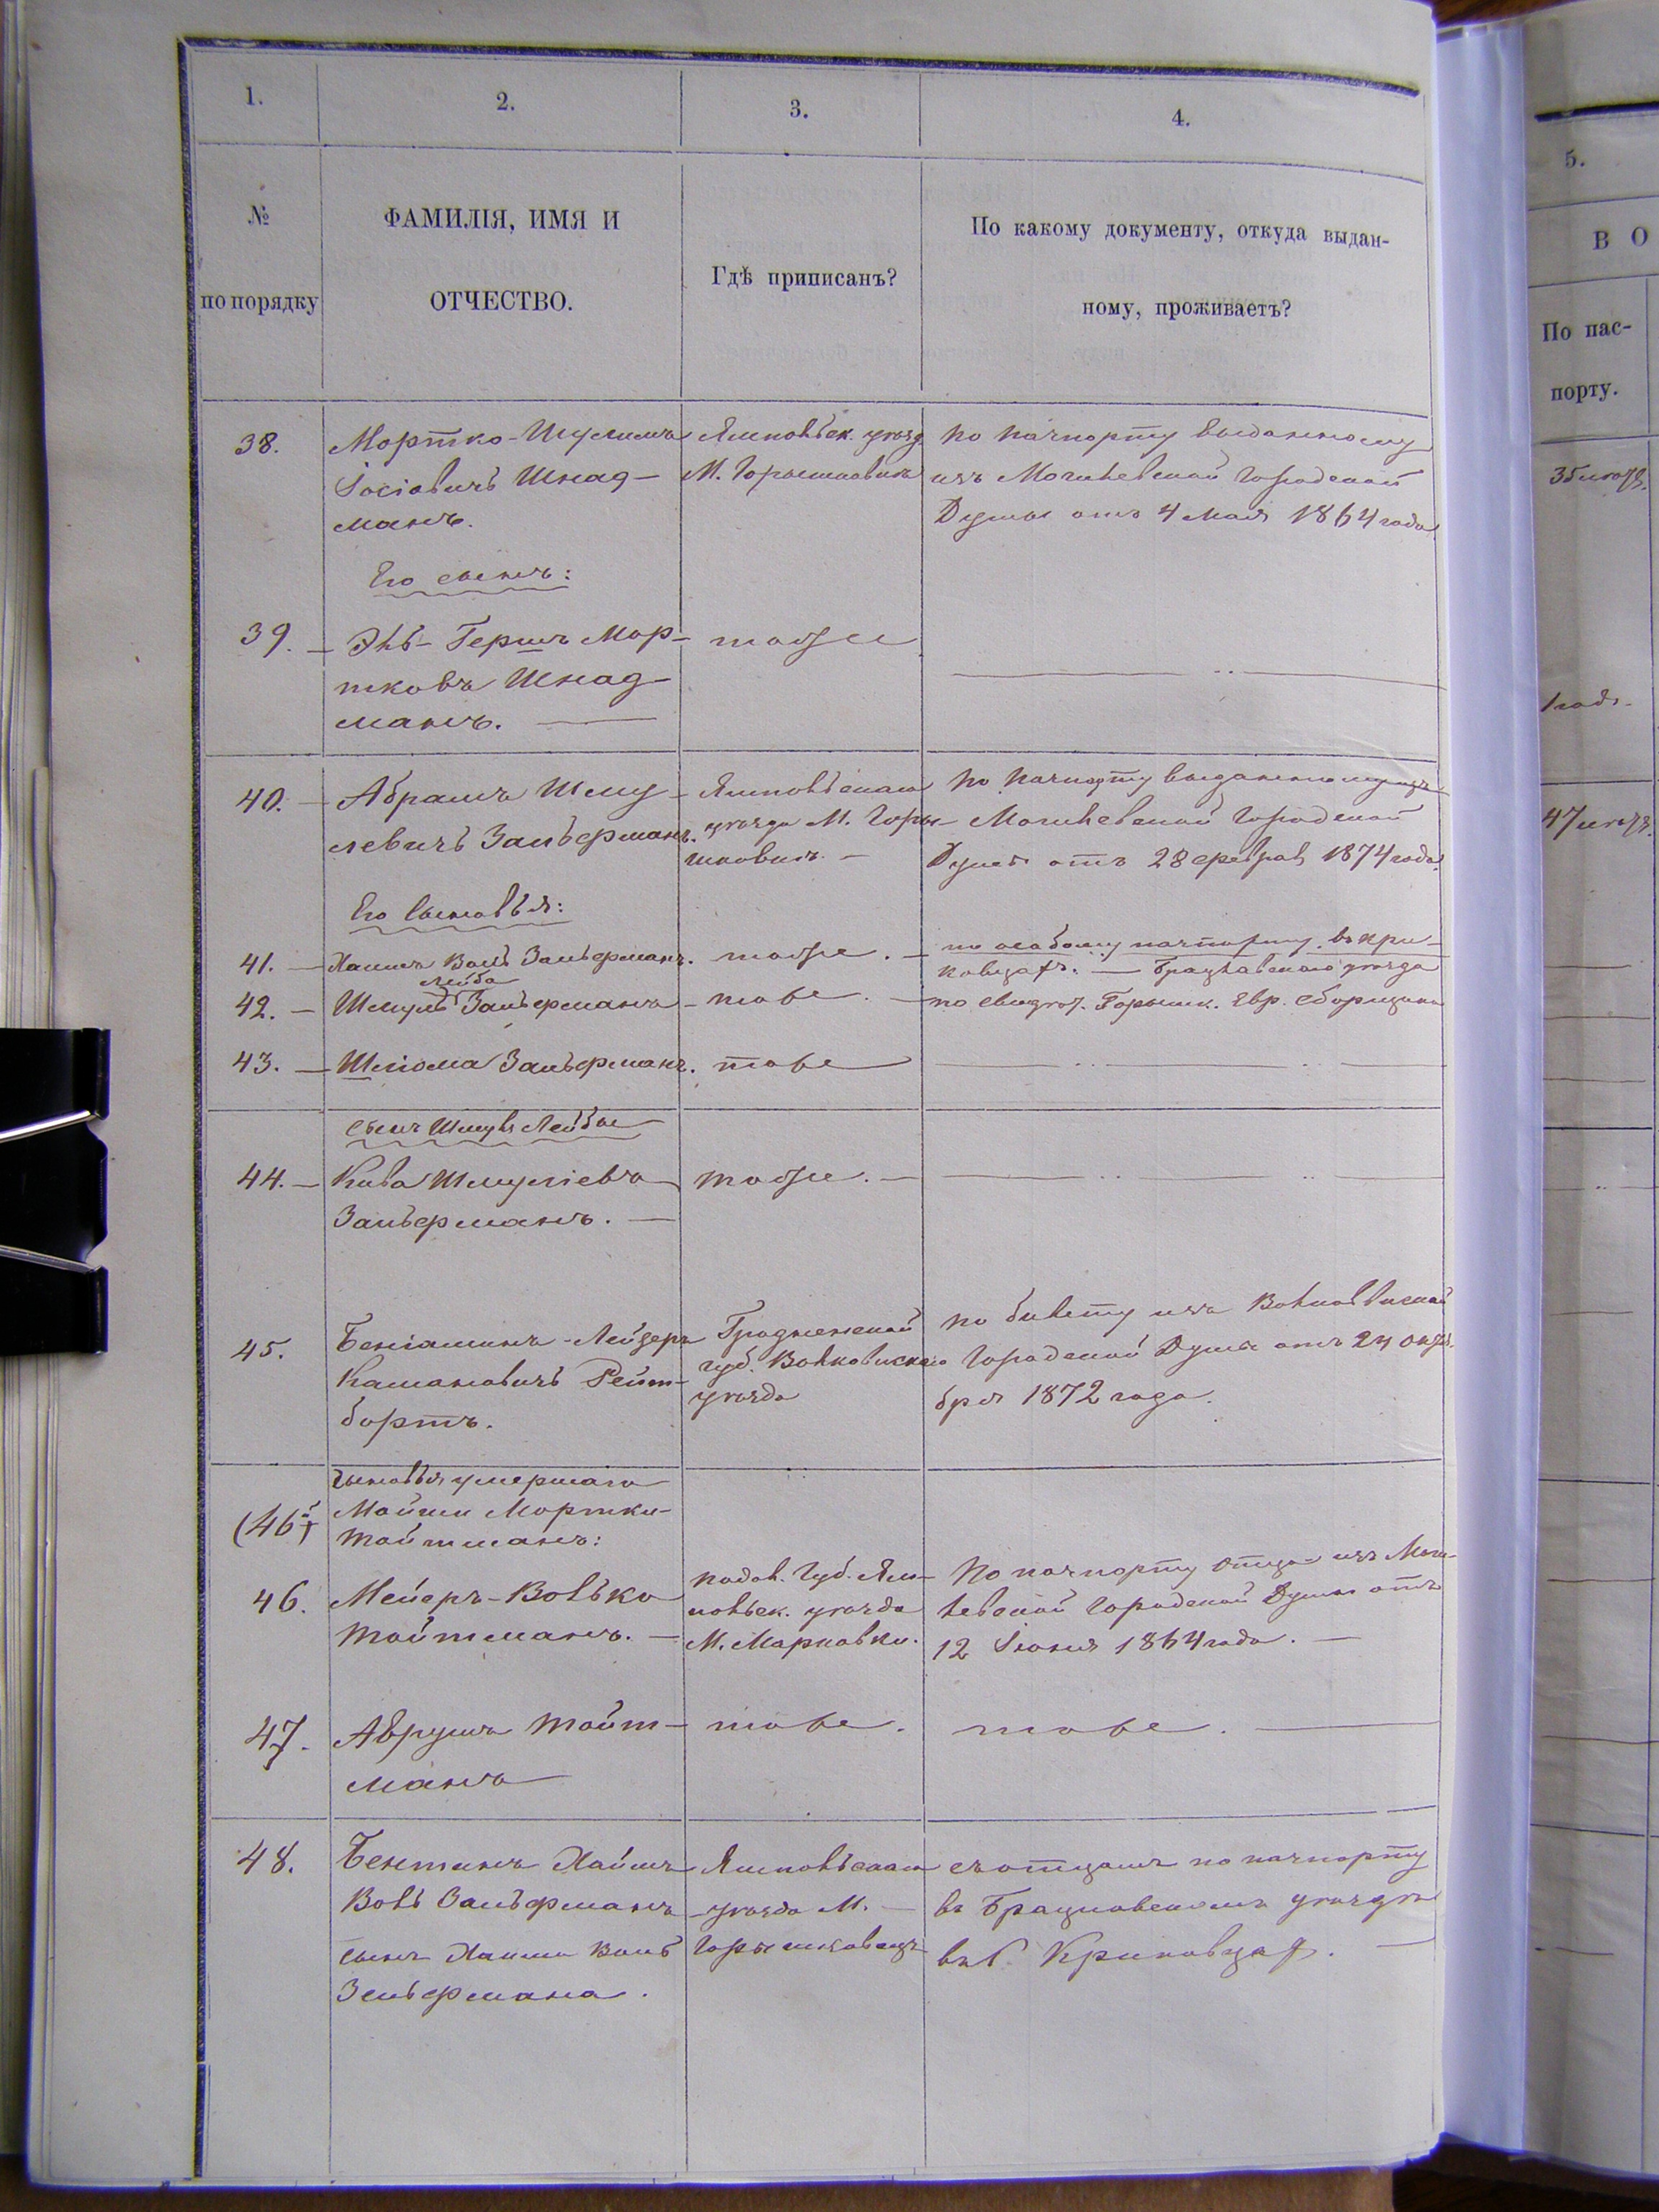 1.
2.
3.
4.
№
по порядку
ФАМИЛІЯ, ИМЯ И
ОТЧЕСТВО.
Гдѣ приписанъ?
По какому документу, откуда выдан-
ному, проживаетъ?
38.
Мортко-Шулимъ
Іосіовичъ Шнад-
манъ.
Ямпольск. уѣзд.
М.
по пачпорту выданному
изъ Могилевской Городской
Думы отъ 4 мая 1864 года
Его сынъ:
39. –
Эль-Гершъ Мор-
тковъ Шнад-
манъ. —
тоже
— .. —
40. –
Абрамъ Шму-
левичъ Зальферманъ.
Ямпольскаго
уѣзда М. Горы-
шковки –
по пачпорту выданному изъ
Могилевской Городской
Думы отъ 28 февраля 1874 года.
Его сыновья:
41. –
Хаимъ Воль Зальферманъ.
тоже. –
по особому пачпорту въ Кри-
ковцахъ. — Брацлавскаго уѣзда
42. –
Лейба
Шмуль Зальферманъ –
тоже. –
по свидѣт. Горышк. Евр. сборщика
43. –
Шліома Зальферманъ.
тоже
— .. — .. —
сынъ Шмуля Лейбы
44. –
Кива Шмуліевъ
Зальферманъ. —
тоже. –
— .. — .. —
45.
Беніаминъ-Лейзеръ
Калмановичъ Рейт-
бортъ.
Гродненской
губ. Волковискаго
уѣзда
по билету изъ Волковиской
Городской Думы отъ 24 октя-
бря 1872 года.
(46й)
сыновья умершаго
Мойши Мортки-
Тойтманъ:
46.
Мейеръ-Волько
Тойтманъ. —
Подол. Губ. Ям-
польск. уѣзда
М. Марковки.
По пачпорту отца изъ Моги-
левской Городской Думы отъ
12 Іюня 1864 года. —
47.
Аврумъ Тойт-
манъ
тоже.
тоже. —
48.
Хаимъ
Воль Зальферманъ
сынъ Хаима Воль
Зельфермана.
Ямпольскаго
уѣзда М. –
съ отцомъ по пачпорту
въ Брацлавскомъ уѣздѣ
въ с. Криковцах. —
5.
В О
По пас-
порту.
35 лѣтъ.
1 годъ.
47 лѣтъ.